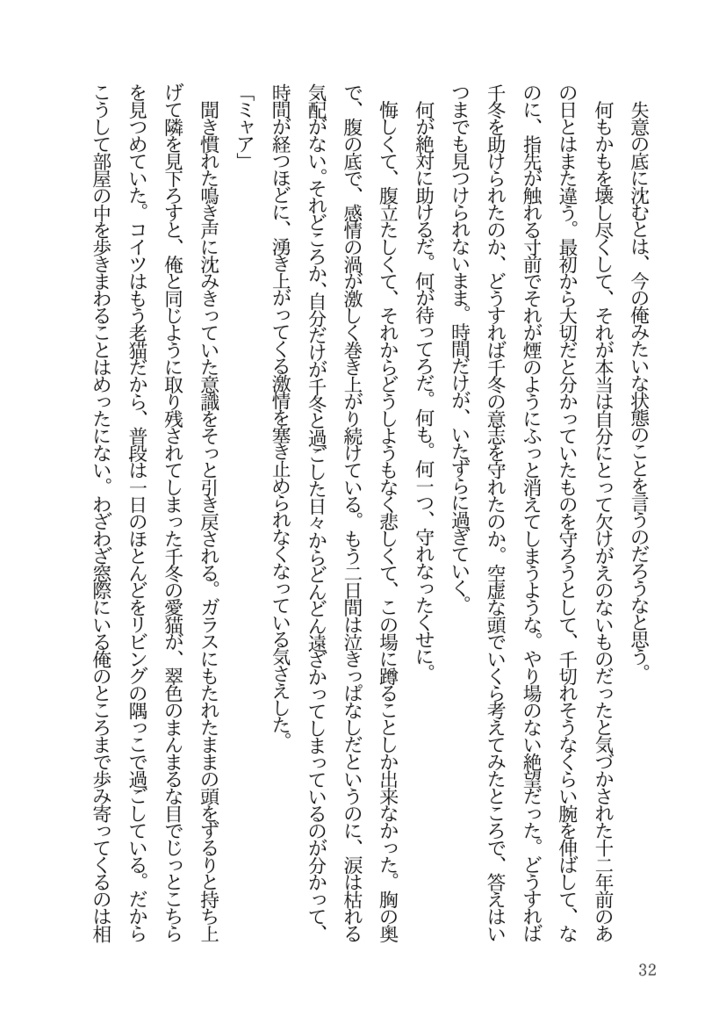 失意の底に沈むとは、今の俺みたいな状態のことを言うのだろうなと思う。
何もかもを壊し尽くして、それが本当は自分にとって欠けがえのないものだったと気づかされた十二年前のあ
の日とはまた違う。最初から大切だと分かっていたものを守ろうとして、千切れそうなくらい腕を伸ばして、な
のに、指先が触れる寸前でそれが煙のようにふっと消えてしまうような。やり場のない絶望だった。どうすれば
千冬を助けられたのか、どうすれば千冬の意志を守れたのか。空虚な頭でいくら考えてみたところで、答えはい
つまでも見つけられないまま。時間だけが、いたずらに過ぎていく。
何が絶対に助けるだ。何が待ってろだ。何も。何一つ、守れなったくせに。
悔しくて、腹立たしくて、それからどうしようもなく悲しくて、この場に蹲ることしか出来なかった。胸の奥
で、腹の底で、感情の渦が激しく巻き上がり続けている。もう二日間は泣きっぱなしだというのに、涙は枯れる
気配がない。それどころか、自分だけが千冬と過ごした日々からどんどん遠ざかってしまっているのが分かって、
時間が経つほどに、湧き上がってくる激情を塞き止められなくなっている気さえした。
「ミャア」
聞き慣れた鳴き声に沈みきっていた意識をそっと引き戻される。ガラスにもたれたままの頭をずるりと持ち上
げて隣を見下ろすと、俺と同じように取り残されてしまった千冬の愛猫が、翠色のまんまるな目でじっとこちら
を見つめていた。コイツはもう老猫だから、普段は一日のほとんどをリビングの隅っこで過ごしている。だから
こうして部屋の中を歩きまわることはめったにない。わざわざ窓際にいる俺のところまで歩み寄ってくるのは相
32